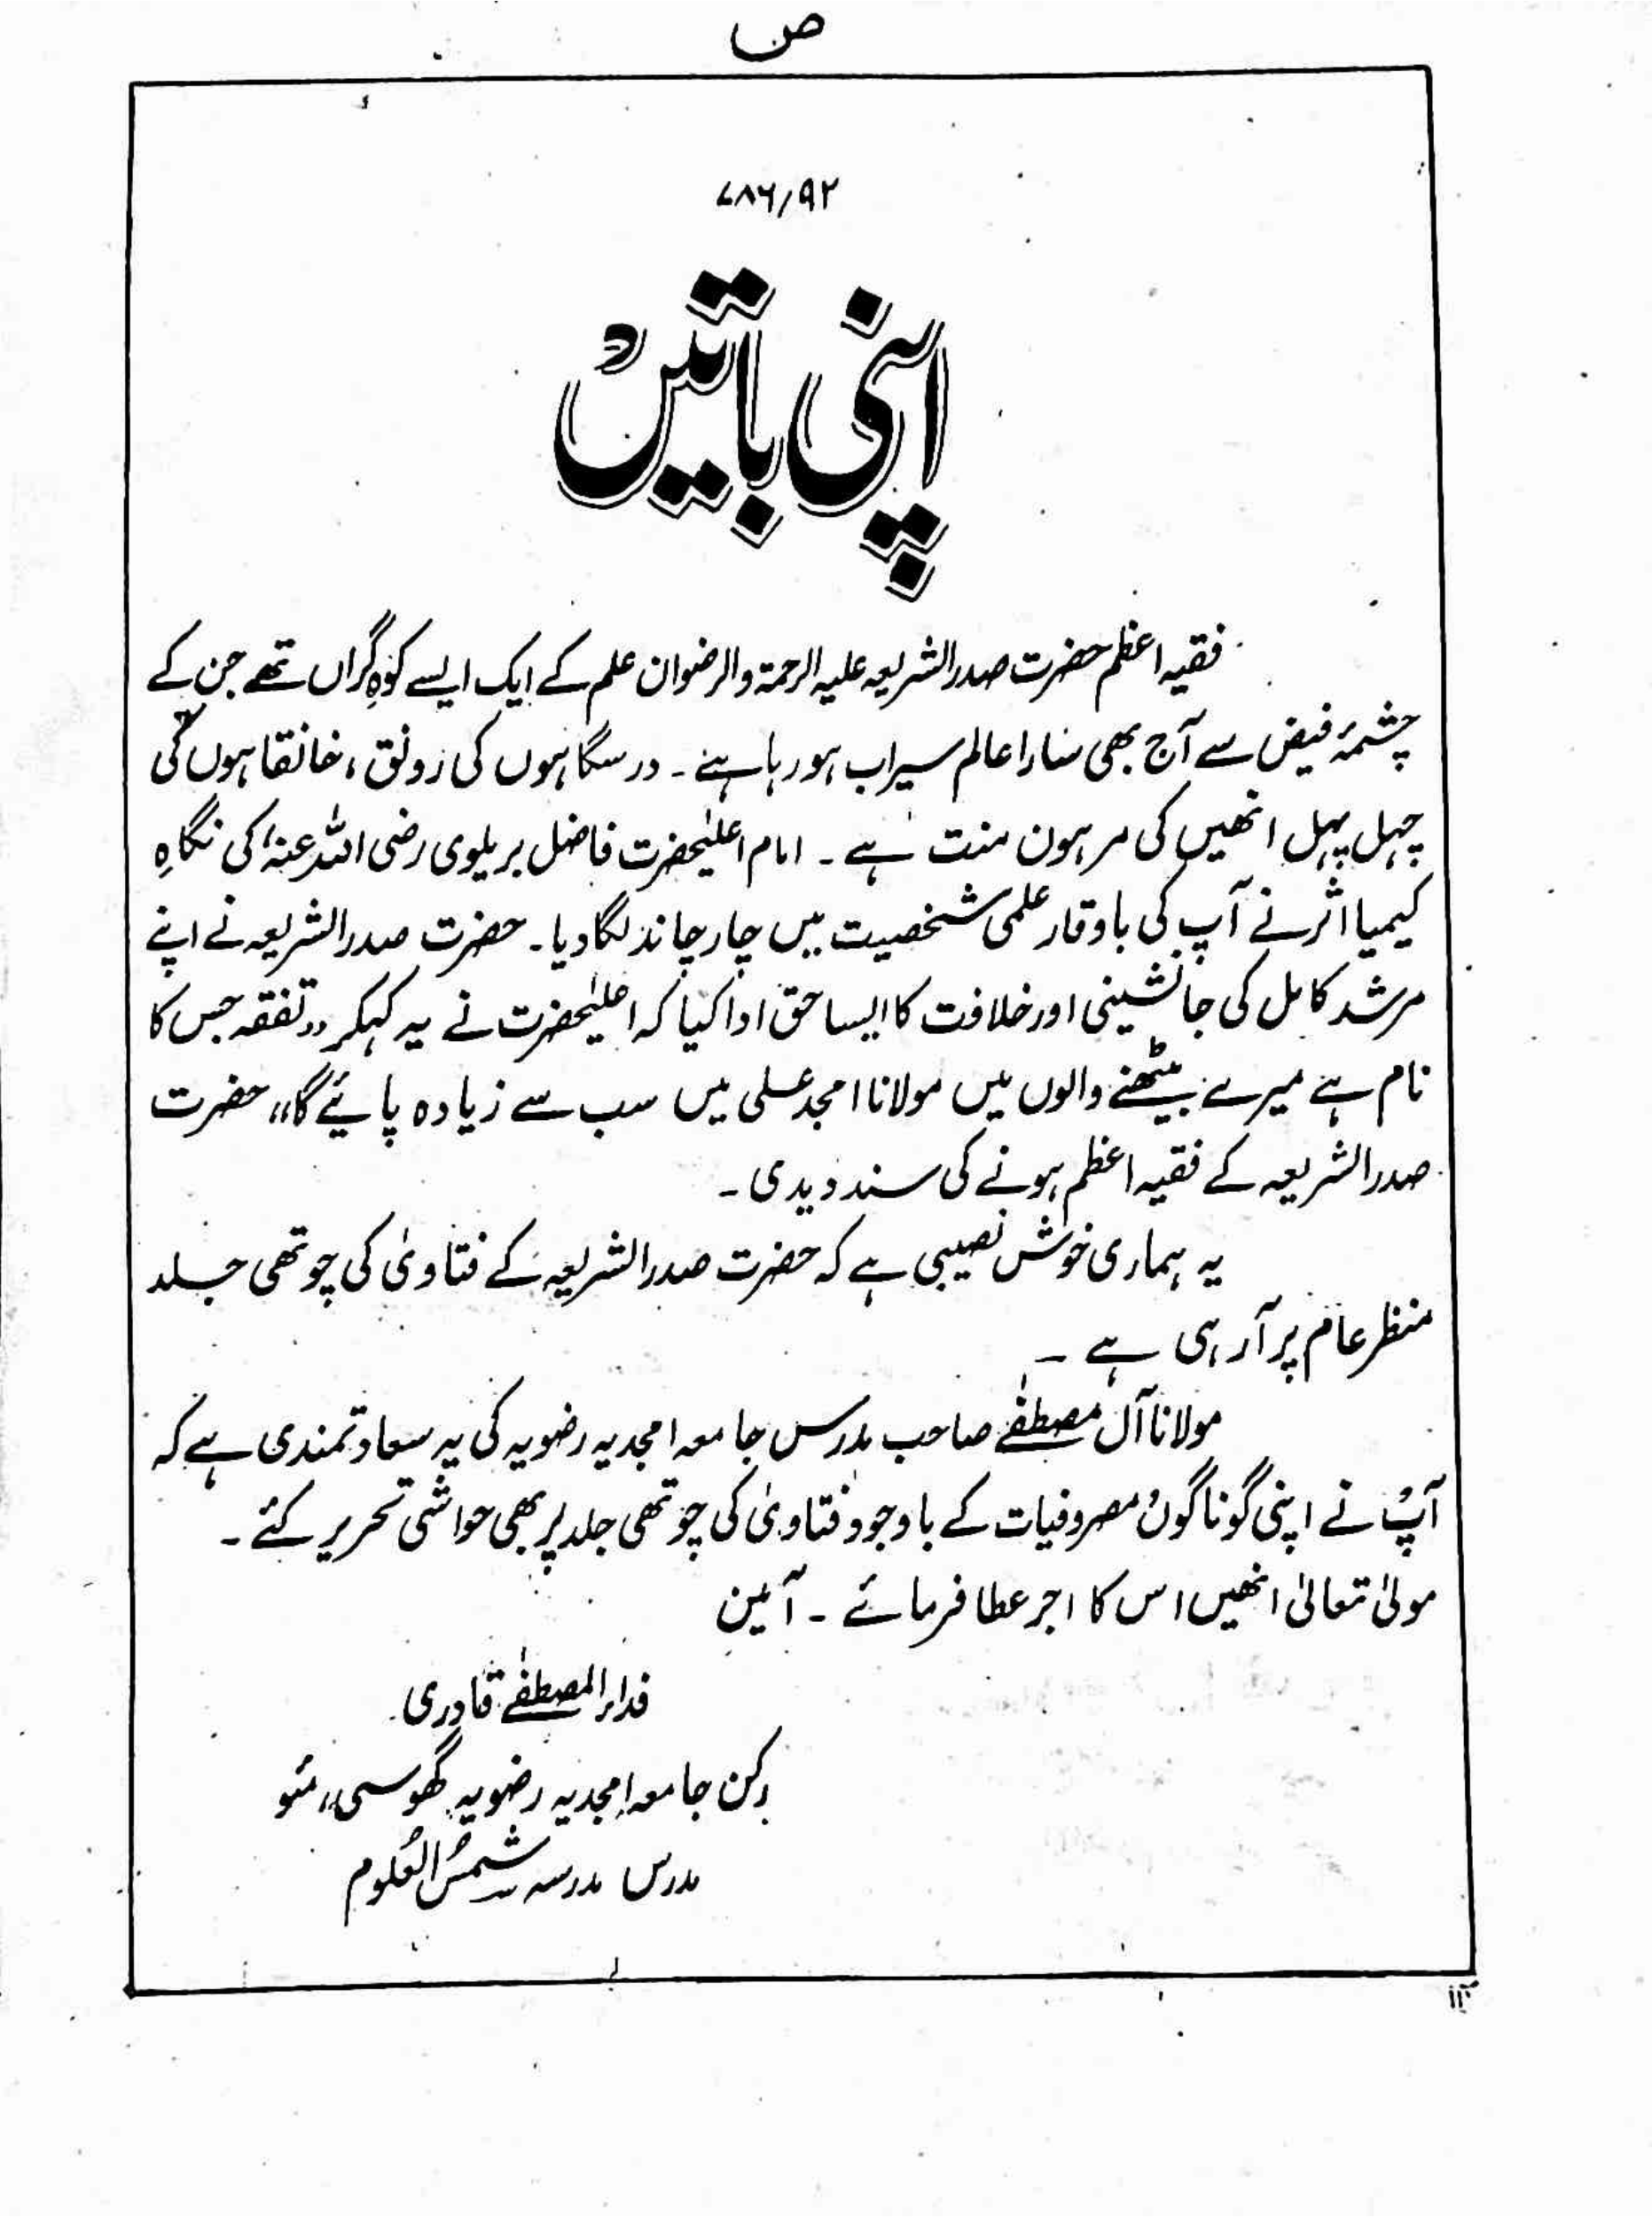 ص
۷۸۶/۹۲
اپنی باتیں
فقیہ اعظم حضرت صدرالشریعہ علیہ الرحمۃ والرضوان علم کے ایک ایسے کوہِ گراں تھے جن کے
چشمۂ فیض سے آج بھی سارا عالم سیراب ہو رہا ہے ۔ درسگاہوں کی رونق ، خانقاہوں کی
چہل پہل انھیں کی مرہون منت ہے ۔ امام اعلیٰحضرت فاضل بریلوی رضی اللہ عنہ کی نگاہِ
کیمیا اثر نے آپ کی باوقار علمی شخصیت میں چار چاند لگا دیا ۔ حضرت صدرالشریعہ نے اپنے
مرشد کامل کی جانشینی اور خلافت کا ایسا حق ادا کیا کہ اعلیٰحضرت نے یہ کہکر ,,تفقہ جس کا
نام ہے میرے بیٹھنے والوں میں مولانا امجد علی میں سب سے زیادہ پائیے گا،، حضرت
صدرالشریعہ کے فقیہ اعظم ہونے کی سند دیدی ۔
یہ ہماری خوش نصیبی ہے کہ حضرت صدرالشریعہ کے فتاویٰ کی چوتھی جلد
منظر عام پر آ رہی ہے ۔
مولانا آل مصطفےٰ صاحب مدرس جامعہ امجدیہ رضویہ کی یہ سعادتمندی ہے کہ
آپ نے اپنی گوناگوں مصروفیات کے باوجود فتاویٰ کی چوتھی جلد پر بھی حواشی تحریر کئے ۔
مولیٰ تعالیٰ انھیں اس کا اجر عطا فرمائے ۔ آمین
فداء المصطفےٰ قادری
رکن جامعہ امجدیہ رضویہ گھوسی،، مئو
مدرس مدرسہ شمسُ العُلوم